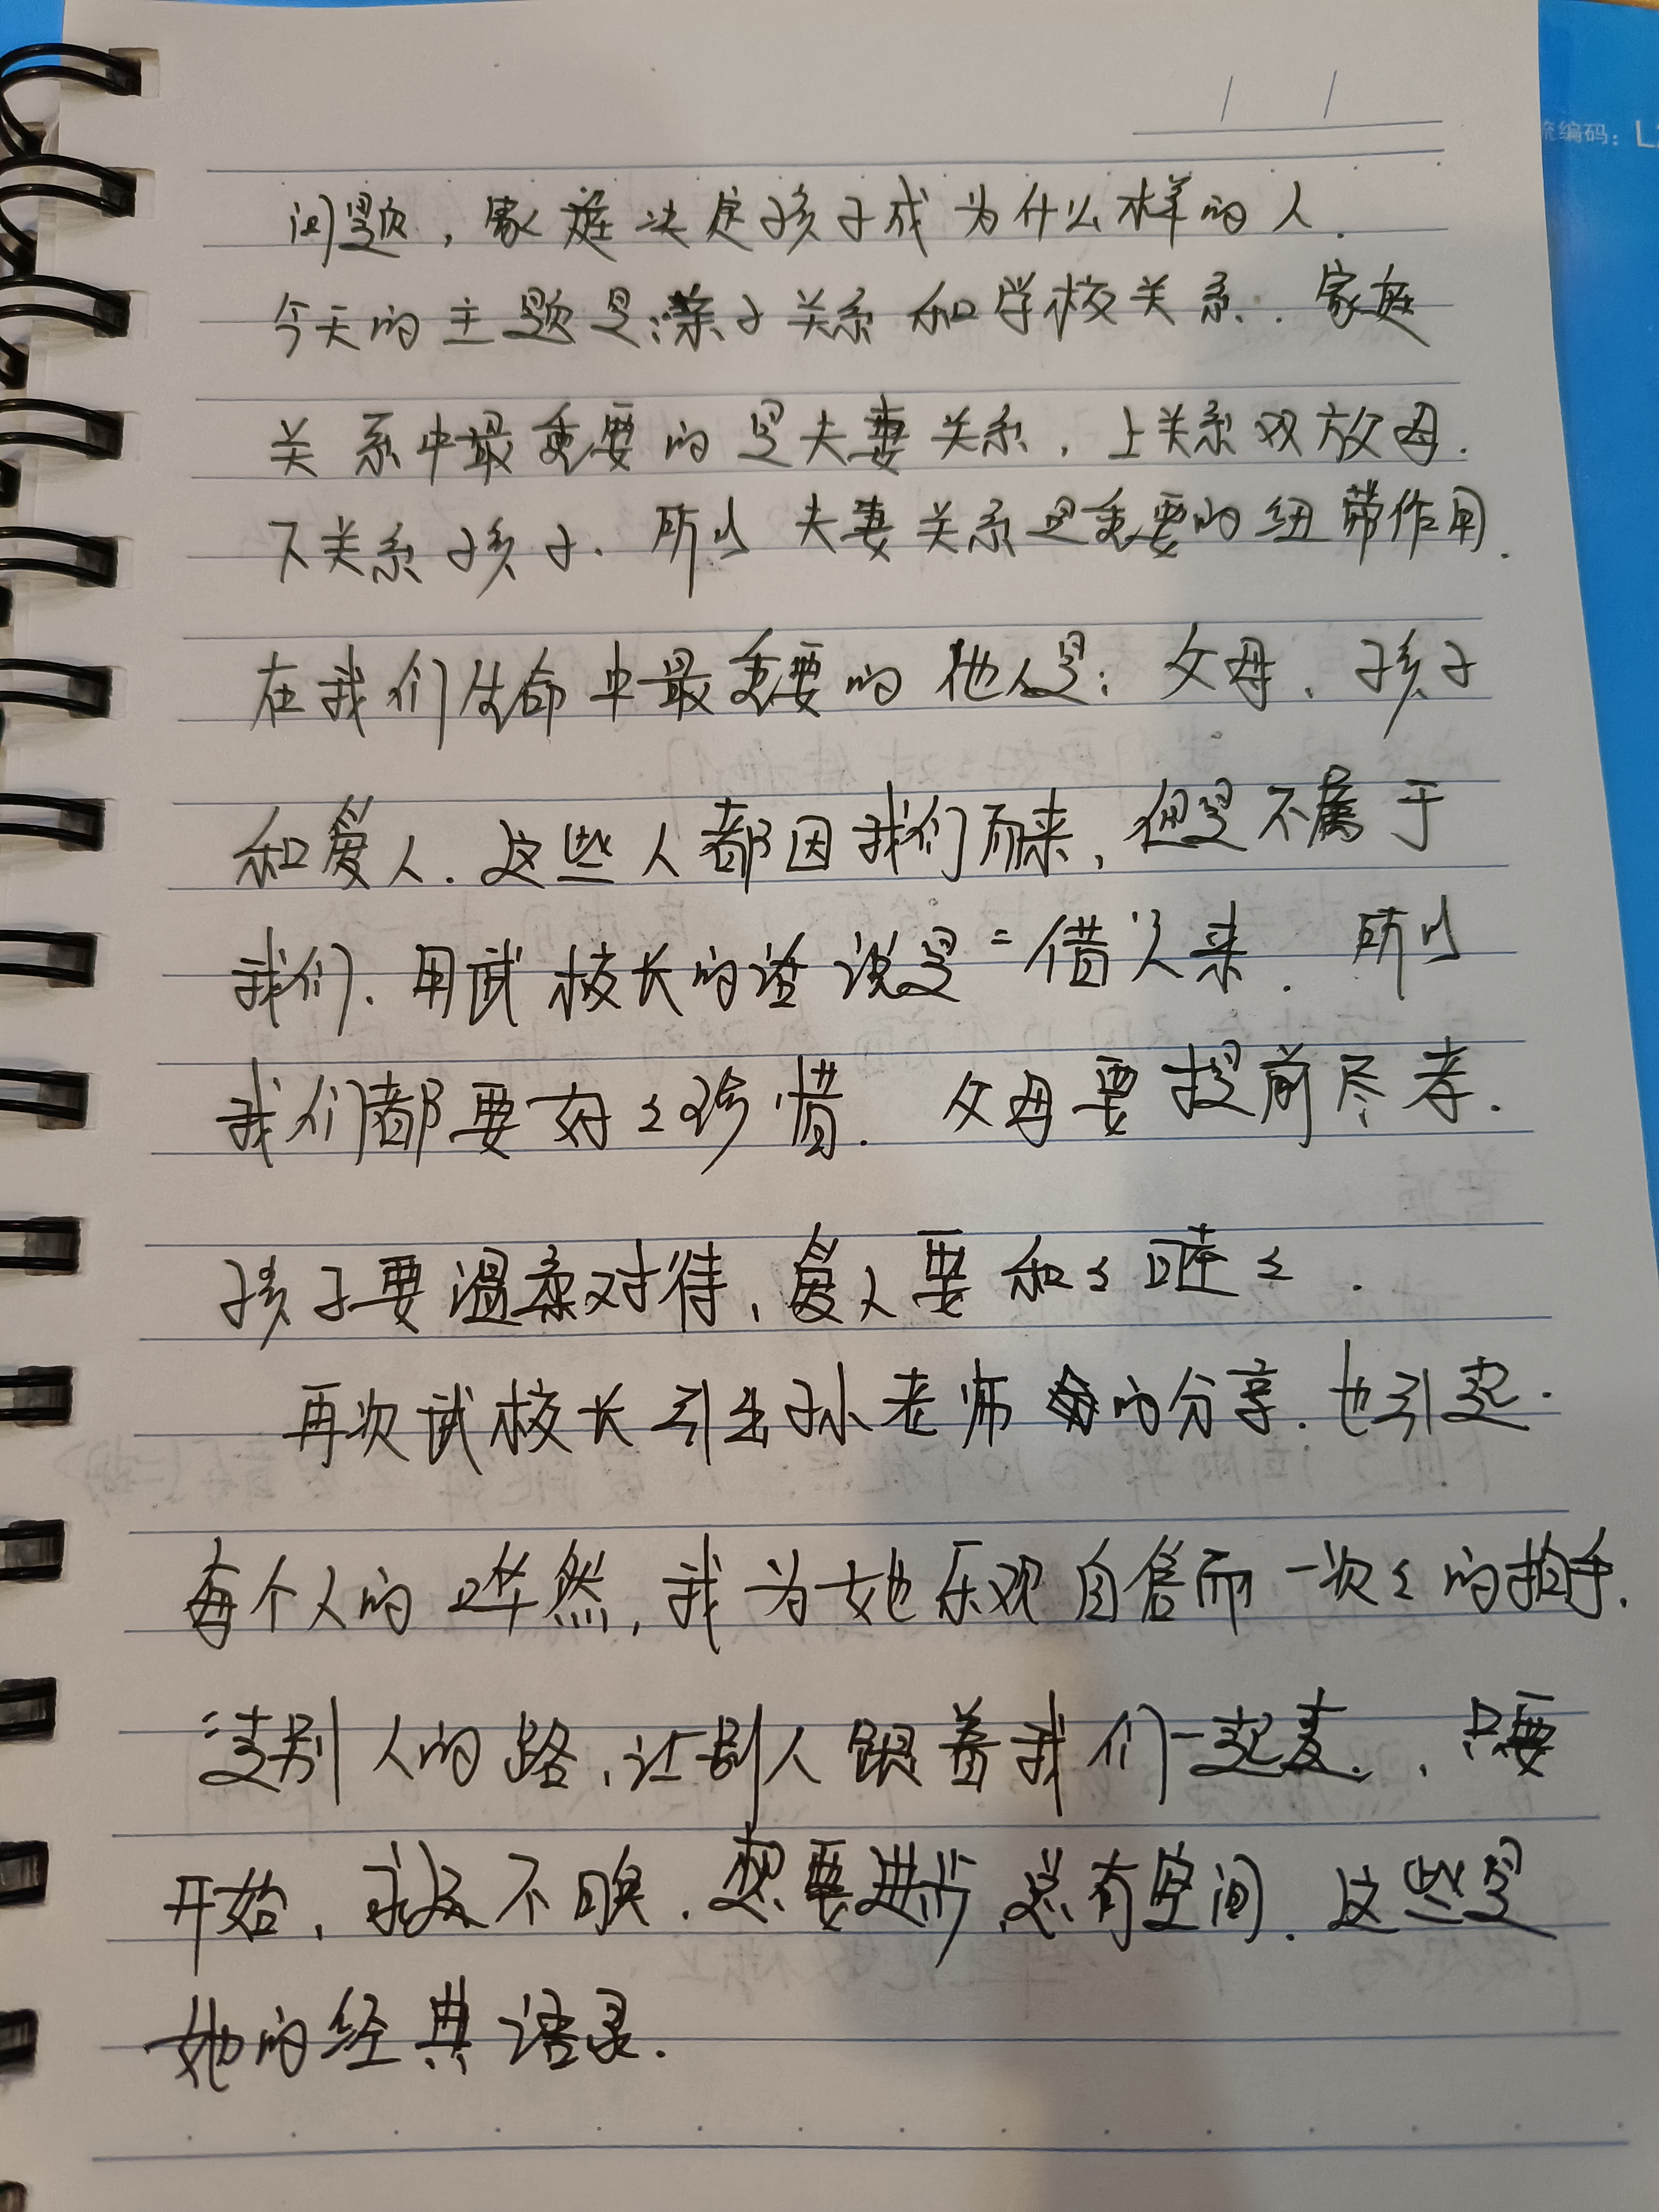 统编码：L
问题，家庭决定孩子成为什么样的人．
今天的主题是：亲子关系和学校关系．家庭
关系中最重要的是夫妻关系，上关系双放母．
下关系孩子．所以夫妻关系是重要的纽带作用．
在我们生命中最重要的他人是：父母、孩子
和爱人．这些人都因我们而来，但是不属于
我们．用武校长的话说是"借"人来．所以
我们都要好好珍惜．父母要提前尽孝．
孩子要温柔对待，爱人要和和睦睦．
再次武校长引出孙老师的分享．也引起
每个人的哗然，我为她乐观自信而一次次的拍手．
走别人的路，让别人跟着我们一起走．，只要
开始，永远不晚．想要进步，总有空间．这些是
她的经典语录．